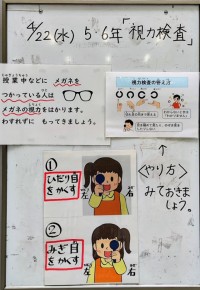 4/22(水) 5・6年「視力検査」
授業中などに メガネを
つかっている人は
メガネの視力をはかります。
わすれずに もってきましょう。
視力検査の答え方
①
ひだり目
をかくす
左
右
〈やり方〉
みておきま
しょう。
②
みぎ目
をかくす
左
右